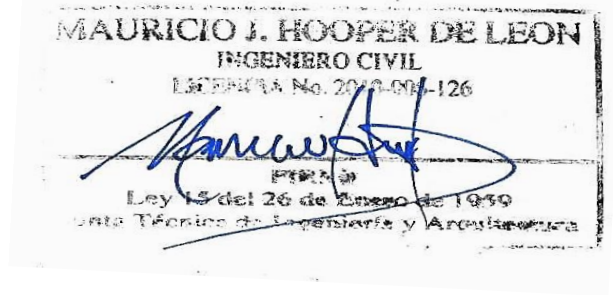 MAURICIO J. HOOPER DE LEON
INGENIERO CIVIL
LICENCIA No.
FIRMA
Ley 15 del 26 de Enero de 1959
Junta Técnica de Ingeniería y Arquitectura